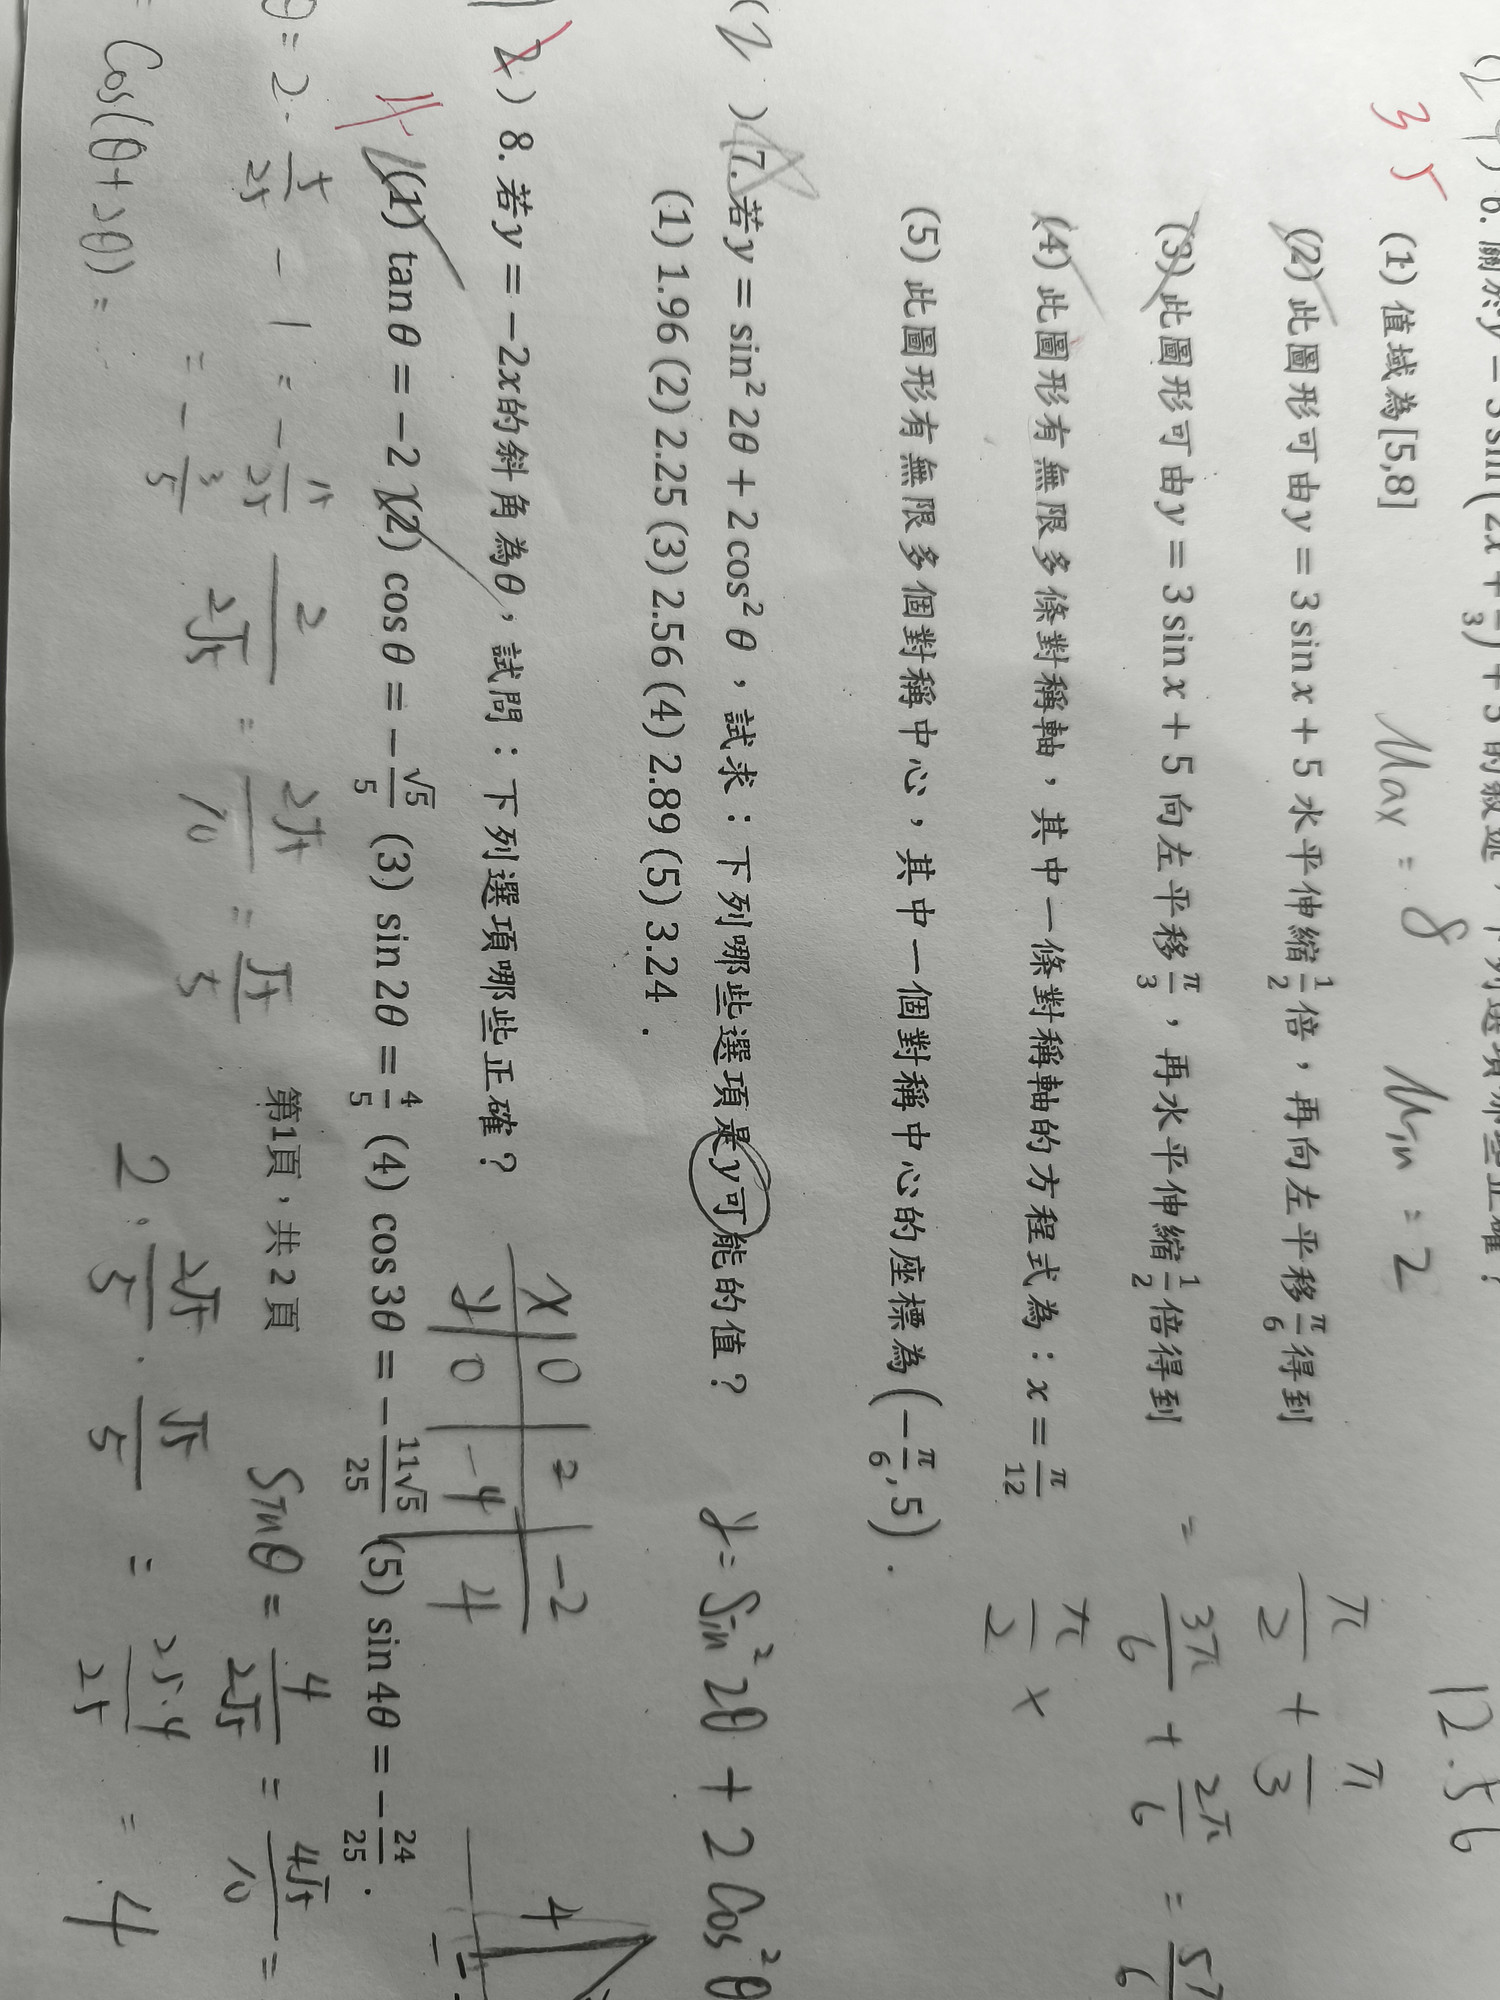 6. 關於y = 3 sin(2x + π/3) + 5 的敘述,下列選項哪些正確?
12.56
3 5
(1) 值域為[5,8]
Max = 8 Min = 2
(2) 此圖形可由y = 3 sin x + 5 水平伸縮1/2倍,再向左平移π/6得到
π/2 + π/3
(3) 此圖形可由y = 3 sin x + 5 向左平移π/3,再水平伸縮1/2倍得到
= 3π/6 + 2π/6 =
(4) 此圖形有無限多條對稱軸,其中一條對稱軸的方程式為:x = π/12
π/2 ×
(5) 此圖形有無限多個對稱中心,其中一個對稱中心的座標為(−π/6, 5).
(2 ) 7. 若y = sin² 2θ + 2 cos² θ,試求:下列哪些選項是y可能的值?
y = Sin² 2θ + 2 Cos² θ
(1) 1.96 (2) 2.25 (3) 2.56 (4) 2.89 (5) 3.24 .
) 8. 若y = −2x的斜角為θ,試問:下列選項哪些正確?
x 0 2 -2
y 0 -4 4
4
(1) tan θ = −2 (2) cos θ = −√5/5 (3) sin 2θ = 4/5 (4) cos 3θ = −11√5/25 (5) sin 4θ = −24/25 .
θ = 2 · 5/25 - 1 = - 15/25
= - 3/5
2/2√5 = 2√5/10 = √5/5
第1頁,共2頁
Sinθ = 4/2√5 = 4√5/10 =
= Cos(θ+2θ) =
2 · 2√5/5 · √5/5 = 25·4/25 = 4